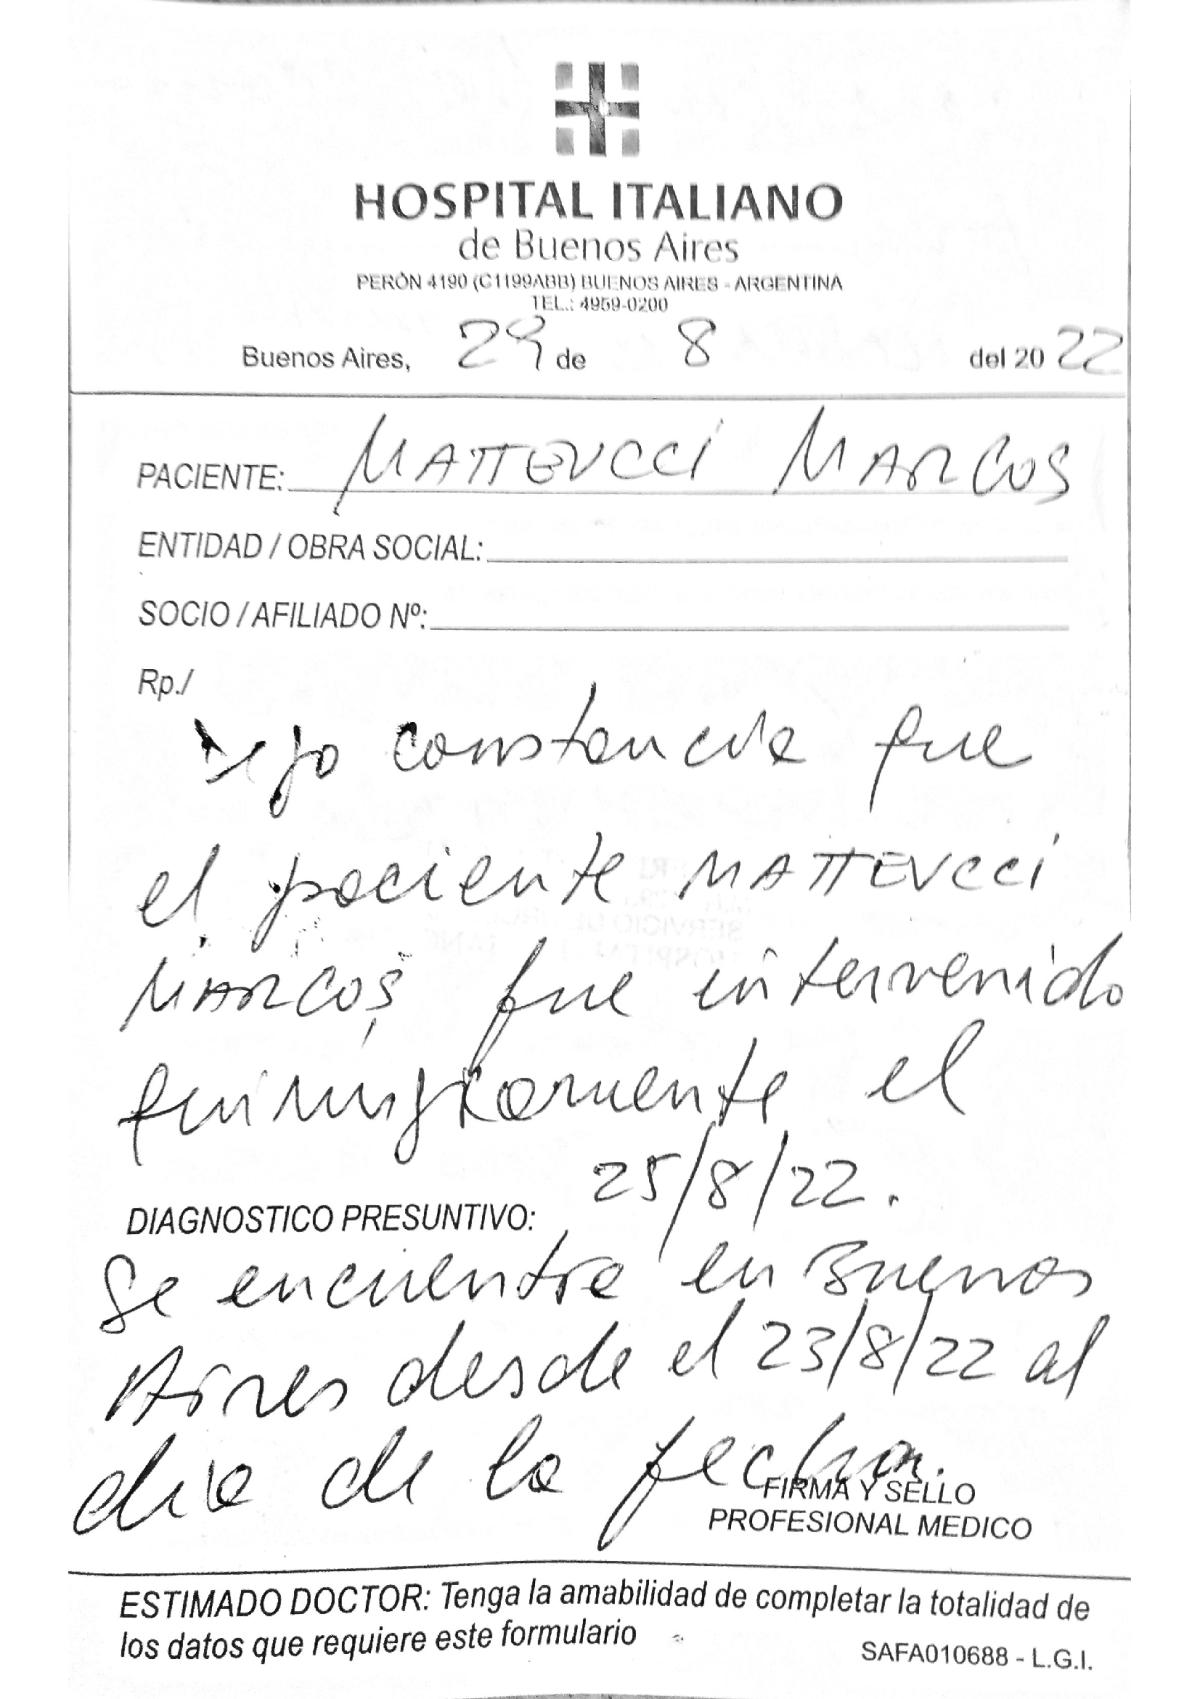 HOSPITAL ITALIANO
de Buenos Aires
PERÓN 4190 (C1199ABB) BUENOS AIRES - ARGENTINA
TEL.: 4959-0200
Buenos Aires, 29 de 8 del 2022
PACIENTE: MATTEUCCI MARCOS
ENTIDAD / OBRA SOCIAL:
SOCIO / AFILIADO Nº:
Rp./
Dejo constancia que
el paciente MATTEUCCI
MARCOS fue intervenido
quirurgicamente el
25/8/22.
DIAGNOSTICO PRESUNTIVO:
Se encuentra en Buenos
Aires desde el 23/8/22 al
dia de la fecha.
FIRMA Y SELLO
PROFESIONAL MEDICO
ESTIMADO DOCTOR: Tenga la amabilidad de completar la totalidad de
los datos que requiere este formulario
SAFA010688 - L.G.I.